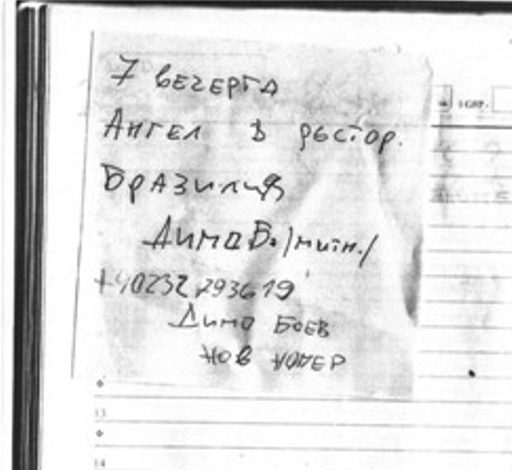 7 вечерта
Ангел в рестор.
Бразилия
Дима Б. /митн./
+40232 293619
Димо Боев
нов номер
13
14